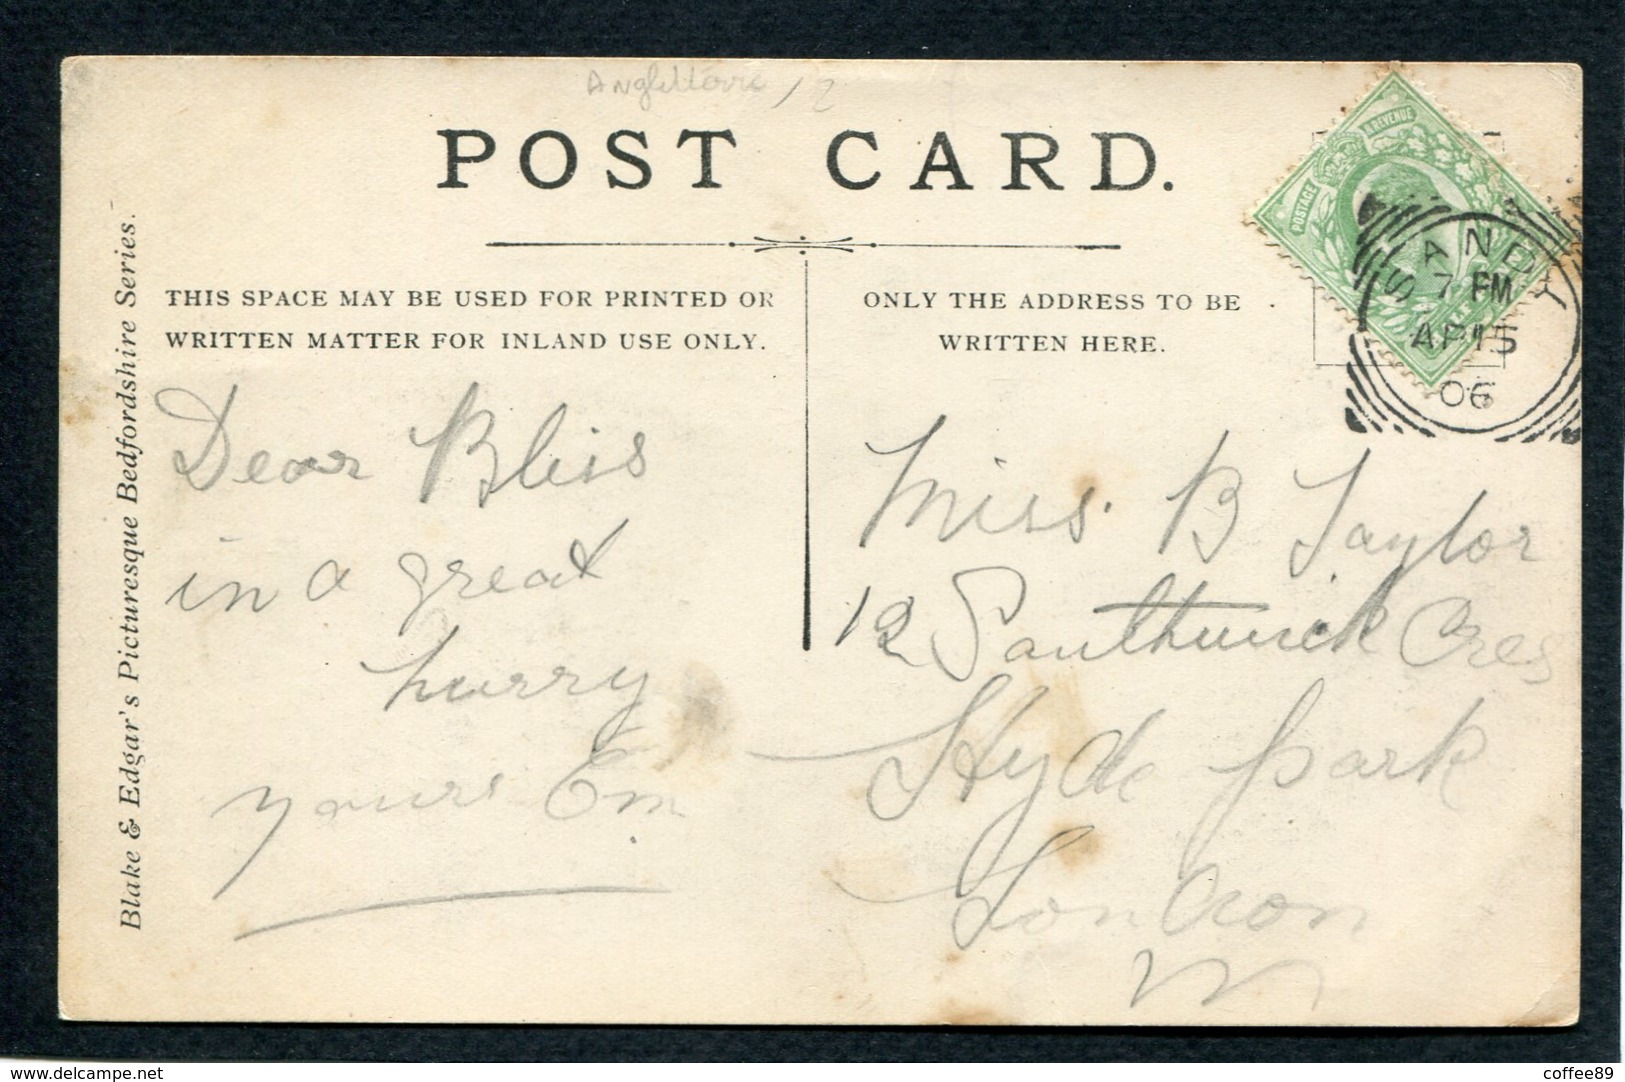 Angleterre / 2
POST CARD.
POSTAGE
& REVENUE
SANDY
7 PM
AP 15
06
Blake & Edgar's Picturesque Bedfordshire Series.
THIS SPACE MAY BE USED FOR PRINTED OR
WRITTEN MATTER FOR INLAND USE ONLY.
ONLY THE ADDRESS TO BE
WRITTEN HERE.
Dear Bliss
in a great
hurry
yours Em
Miss. B Taylor
12 Southwick Cres
Hyde park
London
W
www.delcampe.net
coffee89